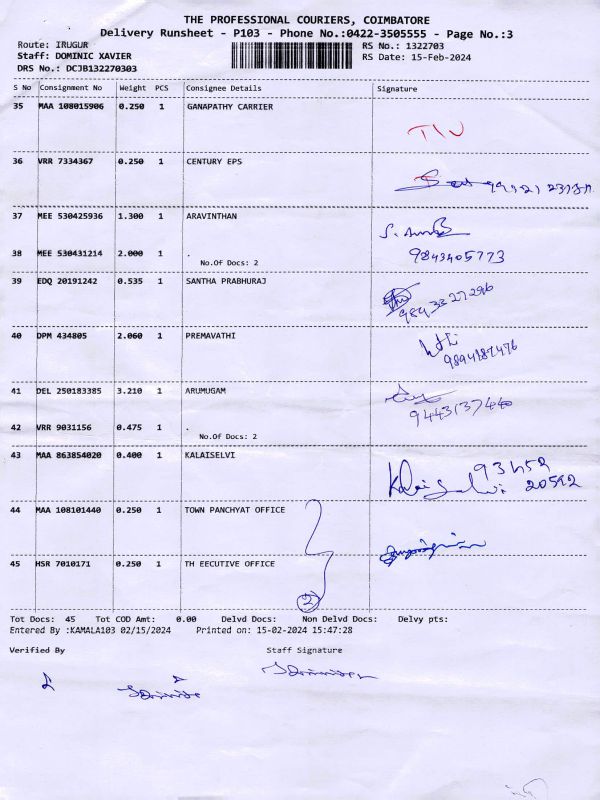 THE PROFESSIONAL COURIERS, COIMBATORE
Delivery Runsheet - P103 - Phone No.:0422-3505555 - Page No.:3
Route: IRUGUR RS No.: 1322703
Staff: DOMINIC XAVIER RS Date: 15-Feb-2024
DRS No.: DCJB132270303
S No Consignment No Weight PCS Consignee Details Signature
35 MAA 108015906 0.250 1 GANAPATHY CARRIER
36 VRR 7334367 0.250 1 CENTURY EPS
37 MEE 530425936 1.300 1 ARAVINTHAN
38 MEE 530431214 2.000 1 .
No.Of Docs: 2
9843405773
39 EDQ 20191242 0.535 1 SANTHA PRABHURAJ
9843327296
40 DPM 434805 2.060 1 PREMAVATHI
9894187476
41 DEL 250183385 3.210 1 ARUMUGAM
9443137440
42 VRR 9031156 0.475 1 .
No.Of Docs: 2
43 MAA 863854020 0.400 1 KALAISELVI
93452
Kalai Selvi 20592
44 MAA 108101440 0.250 1 TOWN PANCHYAT OFFICE
45 HSR 7010171 0.250 1 TH EECUTIVE OFFICE
2
Tot Docs: 45 Tot COD Amt: 0.00 Delvd Docs: Non Delvd Docs: Delvy pts:
Entered By :KAMALA103 02/15/2024 Printed on: 15-02-2024 15:47:28
Verified By Staff Signature